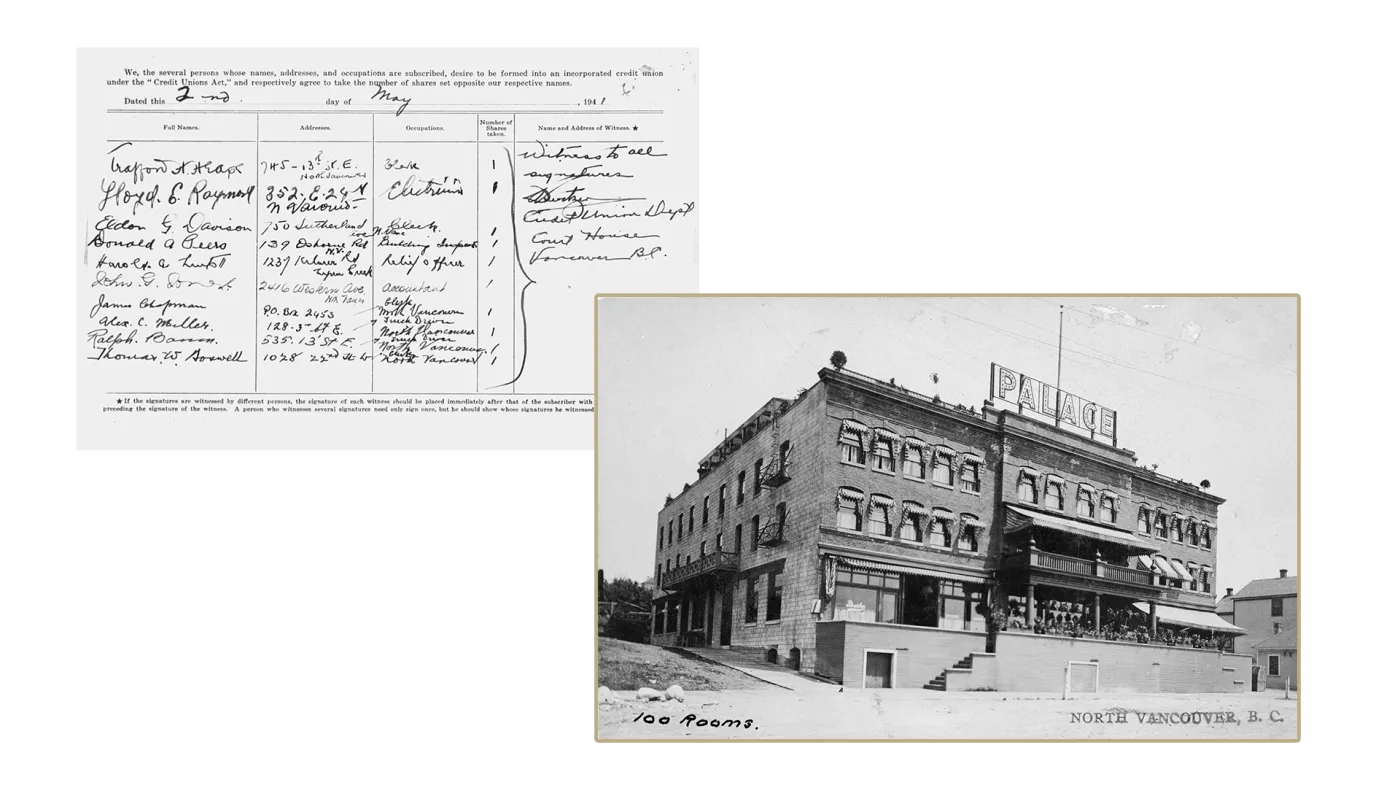 We, the several persons whose names, addresses, and occupations are subscribed, desire to be formed into an incorporated credit union
under the "Credit Unions Act," and respectively agree to take the number of shares set opposite our respective names.
Dated this 2nd day of May, 1941.
Full Names. Addresses. Occupations. Number of Shares taken. Name and Address of Witness. ★
745-13th St. E. Clerk 1
North Vancouver
Lloyd. E. Raymond 352. E. 24 1
N Vancouver
Eldon G. Davison 750 Sutherland Clerk. 1
Donald A Geers 139 Osborne Rd Building Inspector 1
N.V.
Harold. A. 1237 Rd Relief Officer 1
Lynn Creek
John G. Jones 2416 Western Ave. accountant 1
No Van
James Chapman P.O. Box 2453 Clerk North Vancouver 1
Alex. C. Miller. 128-3rd St E. Truck Driver North Vancouver 1
Ralph. 535. 13 St E. Truck Driver North Vancouver. 1
Thomas W. Boswell 1028 22nd St W North Vancouver 1
Witness to all
signatures
Credit Union Dept
Court House
Vancouver B.C.
★ If the signatures are witnessed by different persons, the signature of each witness should be placed immediately after that of the subscriber with
preceding the signature of the witness. A person who witnesses several signatures need only sign once, but he should show whose signatures he witnessed
PALACE
100 Rooms.
NORTH VANCOUVER, B. C.